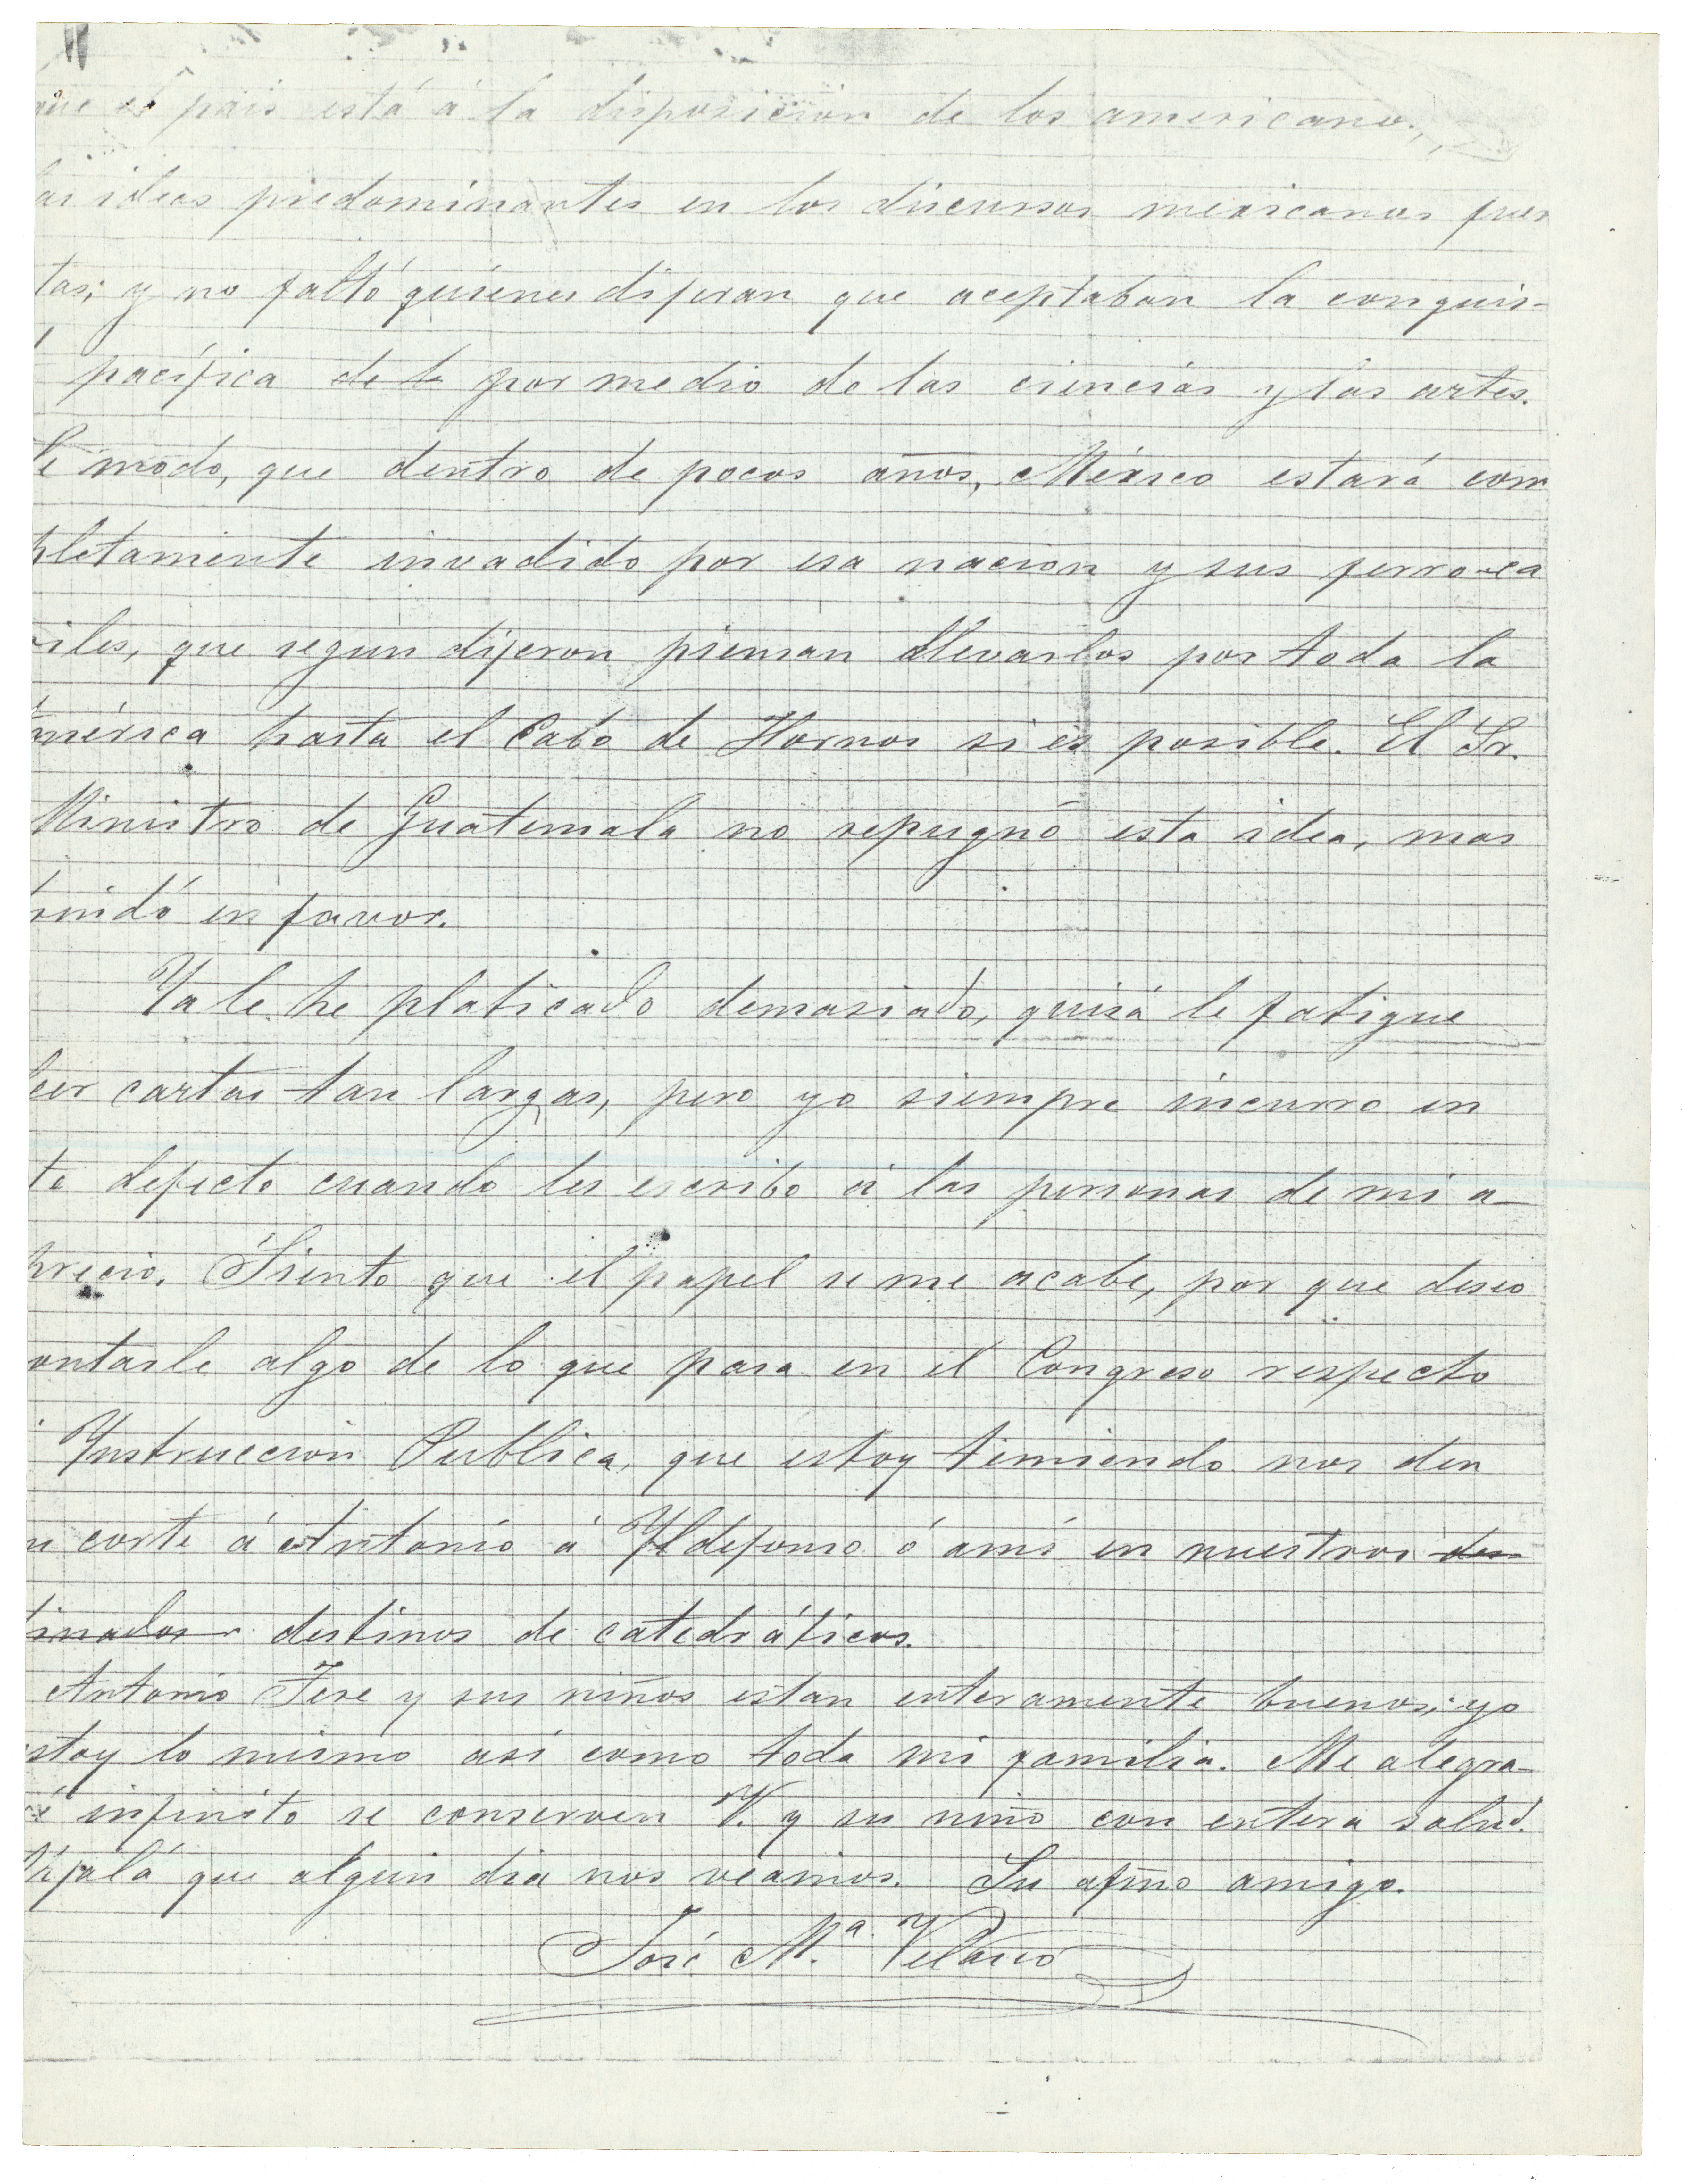 que el pais está á la disposicion de los americanos,
as ideas predominantes en los discursos mexicanos fuer
tas; y no faltó quiénes dijeran que aceptaban la conquis-
pacífica de la por medio de las ciencias y las artes.
e modo, que dentro de pocos años, México estará com
pletamente invadido por esa nacion y sus ferro-ca
iles, que segun dijeron piensan llevarlos por toda la
mérica hasta el Cabo de Hornos si es posible. El Sr.
Ministro de Guatemala no repugnó esta idea, mas
rindó en favor.
Ya le he platicado demasiado, quizá le fatigue
leer cartas tan largas, pero yo siempre incurro en
te defecto cuando les escribo á las personas de mi a-
precio. Siento que el papel se me acabe, por que deseo
ontarle algo de lo que pasa en el Congreso respecto
Ynstruccion Publica, que estoy temiendo nos den
n corte á Antonio á Yldefonso ó amí en nuestros des
tinados destinos de catedráticos.
Antonio Tere y sus niños estan enteramente buenos; yo
stoy lo mismo asi como toda mi familia. Me alegra-
é infinito se conserven V. y su niño con entera salud.
Ojalá que algun dia nos veamos. Su afmo amigo.
José Mª. Velasco